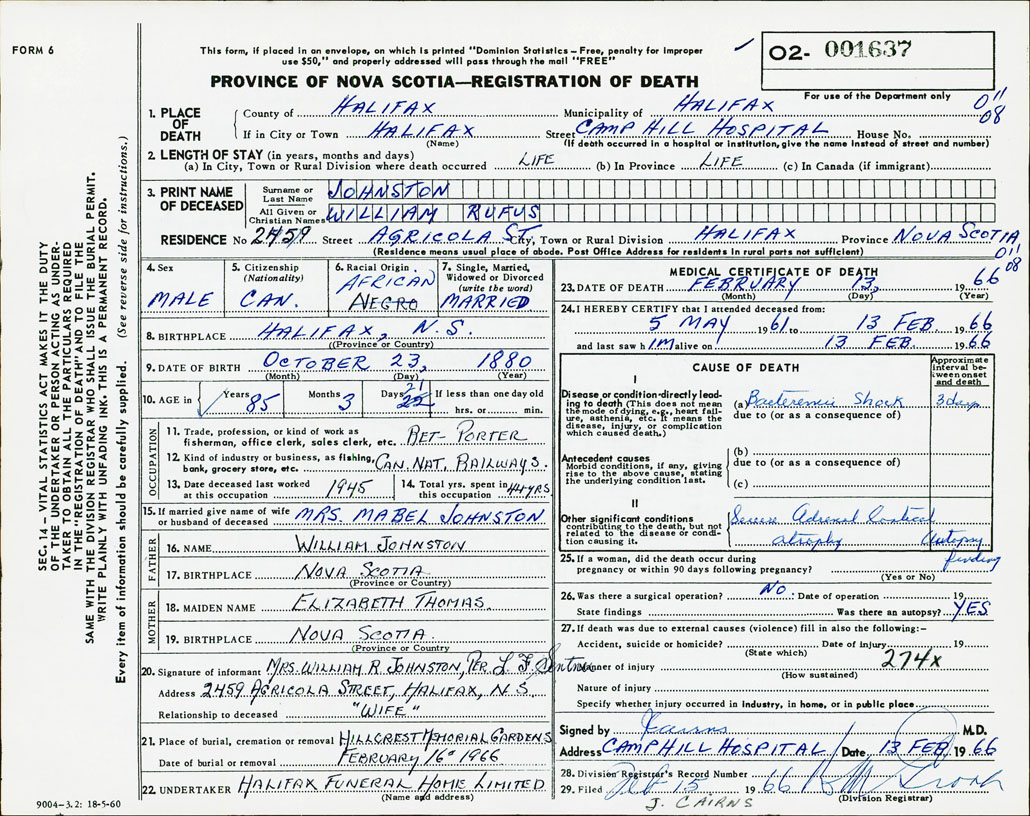 FORM 6
This form, if placed in an envelope, on which is printed "Dominion Statistics – Free, penalty for improper
use $50," and properly addressed will pass through the mail "FREE"
PROVINCE OF NOVA SCOTIA—REGISTRATION OF DEATH
02- 001637
For use of the Department only
011
08
1. PLACE OF DEATH
County of HALIFAX Municipality of HALIFAX
If in City or Town HALIFAX Street CAMP HILL HOSPITAL House No.
(Name) (If death occurred in a hospital or institution, give the name instead of street and number)
2. LENGTH OF STAY (in years, months and days)
(a) In City, Town or Rural Division where death occurred LIFE (b) In Province LIFE (c) In Canada (if immigrant)
3. PRINT NAME OF DECEASED
Surname or Last Name JOHNSTON
All Given or Christian Names WILLIAM RUFUS
RESIDENCE No 2459 Street AGRICOLA ST. City, Town or Rural Division HALIFAX Province NOVA SCOTIA
(Residence means usual place of abode. Post Office Address for residents in rural parts not sufficient)
011
08
4. Sex MALE
5. Citizenship (Nationality) CAN.
6. Racial Origin AFRICAN NEGRO
7. Single, Married, Widowed or Divorced (write the word) MARRIED
8. BIRTHPLACE HALIFAX, N.S.
(Province or Country)
9. DATE OF BIRTH OCTOBER 23, 1880
(Month) (Day) (Year)
10. AGE in Years 85 Months 3 Days 21 22 If less than one day old hrs. or min.
OCCUPATION
11. Trade, profession, or kind of work as
fisherman, office clerk, sales clerk, etc. RET- PORTER
12. Kind of industry or business, as fishing,
bank, grocery store, etc. CAN. NAT. RAILWAYS.
13. Date deceased last worked
at this occupation 1945
14. Total yrs. spent in
this occupation 44 YRS
15. If married give name of wife
or husband of deceased MRS. MABEL JOHNSTON
FATHER
16. NAME WILLIAM JOHNSTON
17. BIRTHPLACE NOVA SCOTIA
(Province or Country)
MOTHER
18. MAIDEN NAME ELIZABETH THOMAS
19. BIRTHPLACE NOVA SCOTIA.
(Province or Country)
20. Signature of informant MRS. WILLIAM R. JOHNSTON, PER. L. F.
Address 2459 AGRICOLA STREET, HALIFAX, N.S.
Relationship to deceased "WIFE"
21. Place of burial, cremation or removal HILLCREST MEMORIAL GARDENS
Date of burial or removal FEBRUARY 16 1966
22. UNDERTAKER HALIFAX FUNERAL HOME LIMITED
(Name and address)
MEDICAL CERTIFICATE OF DEATH
23. DATE OF DEATH FEBRUARY 13, 1966
(Month) (Day) (Year)
24. I HEREBY CERTIFY that I attended deceased from:
5 MAY 1961 to 13 FEB 1966
and last saw him alive on 13 FEB. 1966
CAUSE OF DEATH
Approximate interval between onset and death
I
Disease or condition directly leading to death (This does not mean the mode of dying, e.g., heart failure, asthenia, etc. It means the disease, injury, or complication which caused death.)
(a) Bacteremic Shock 3 days
due to (or as a consequence of)
Antecedent causes
Morbid conditions, if any, giving rise to the above cause, stating the underlying condition last.
(b)
due to (or as a consequence of)
(c)
II
Other significant conditions
contributing to the death, but not related to the disease or condition causing it.
Severe Adrenal Cortical
atrophy Autopsy
finding
25. If a woman, did the death occur during
pregnancy or within 90 days following pregnancy?
(Yes or No)
26. Was there a surgical operation? NO. Date of operation 19
State findings Was there an autopsy? YES
27. If death was due to external causes (violence) fill in also the following:–
Accident, suicide or homicide? Date of injury 19
(State which) 274x
Manner of injury
(How sustained)
Nature of injury
Specify whether injury occurred in industry, in home, or in public place
Signed by J Cairns M.D.
Address CAMP HILL HOSPITAL Date 13 FEB 1966
28. Division Registrar's Record Number
29. Filed Feb 15 1966
(Division Registrar)
J. CAIRNS
SEC. 14 – VITAL STATISTICS ACT MAKES IT THE DUTY
OF THE UNDERTAKER OR PERSON ACTING AS UNDER-
TAKER TO OBTAIN ALL THE PARTICULARS REQUIRED
IN THE "REGISTRATION OF DEATH" AND TO FILE THE
SAME WITH THE DIVISION REGISTRAR WHO SHALL ISSUE THE BURIAL PERMIT.
WRITE PLAINLY WITH UNFADING INK. THIS IS A PERMANENT RECORD.
Every item of information should be carefully supplied. (See reverse side for instructions.)
9004–3.2: 18-5-60